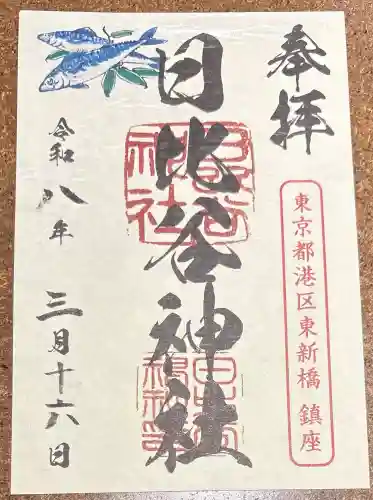 奉拝
東京都港区東新橋 鎮座
日比谷神社
令和八年 三月十六日